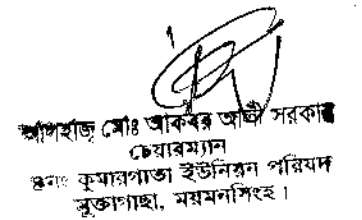 আলহাজ্ব মোঃ আকবর আলী সরকার
চেয়ারম্যান
কুমারগাতা ইউনিয়ন পরিষদ
মুক্তাগাছা, ময়মনসিংহ।